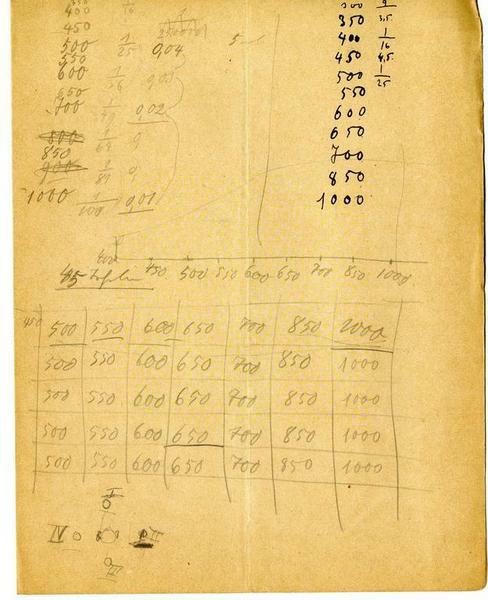 400 1/16
450
500 1/25 0,04
550
600
650
700 0,02
800
850
900 1/81
1000 1/100 0,01
5 —
300
350 3,5
400 1/16
450 4,5
500 1/25
550
600
650
700
850
1000
400
45 450 500 550 600 650 700 850 1000
450 500 550 600 650 700 850 1000
500 550 600 650 700 850 1000
500 550 600 650 700 850 1000
500 550 600 650 700 850 1000
500 550 600 650 700 850 1000
I
IV II
III